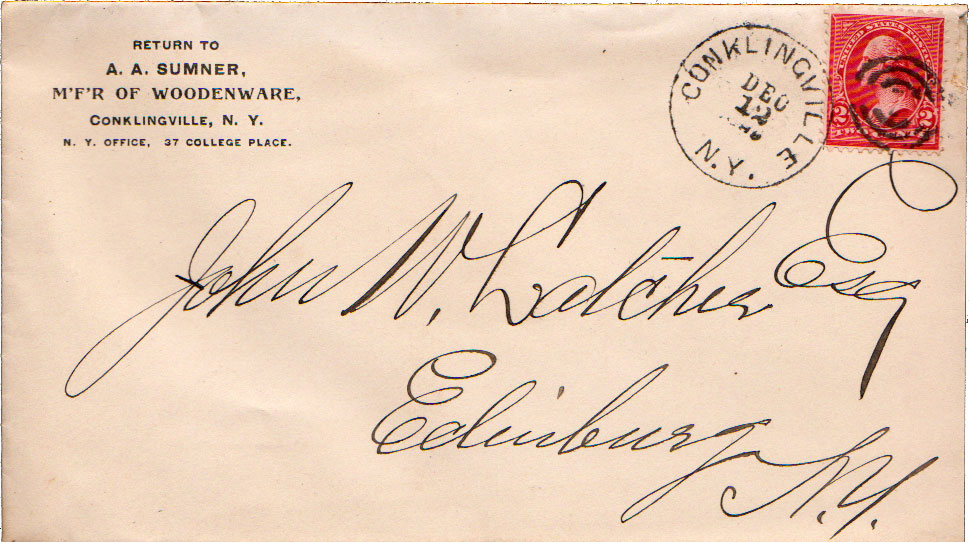 RETURN TO
A. A. SUMNER,
M'F'R OF WOODENWARE,
CONKLINGVILLE, N. Y.
N. Y. OFFICE, 37 COLLEGE PLACE.
CONKLINGVILLE
DEC
12
N.Y.
UNITED STATES POSTAGE
2 2
John W. Latcher Esq
Edinburg
N.Y.